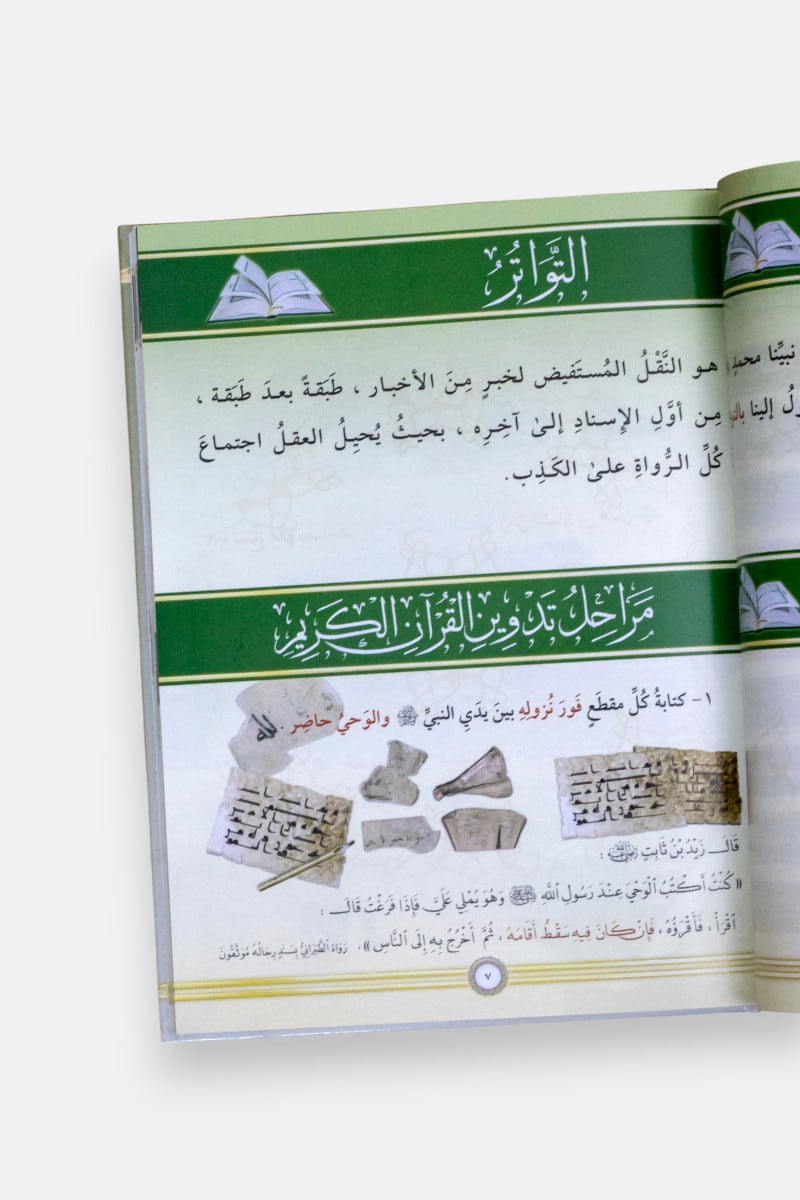 التَّوَاتُرُ
هو النَّقْلُ المُستَفيض لخبرٍ مِنَ الأخبار ، طَبَقةً بعدَ طَبَقة ،
مِن أوَّلِ الإِسنادِ إلىٰ آخِرِه ، بحيثُ يُحيِلُ العقلُ اجتماعَ
كُلِّ الرُّواةِ علىٰ الكَذِب.
مَرَاحِلُ تَدْوِينِ القُرْآنِ الكَرِيمِ
١- كتابةُ كُلِّ مقطَعٍ فَورَ نُزولِهِ بينَ يدَيِ النبيِّ ﷺ والوَحيُ حاضِر .
قَالَ زَيْدُ بْنُ ثَابِتٍ رَضِيَ اللَّهُ عَنْهُ :
« كُنْتُ أَكْتُبُ الْوَحْيَ عِنْدَ رَسُولِ اللَّهِ ﷺ وَهُوَ يُمْلِي عَلَيَّ فَإِذَا فَرَغْتُ قَالَ :
اقْرَأْ ، فَأَقْرَؤُهُ ، فَإِنْ كَانَ فِيهِ سَقْطٌ أَقَامَهُ ، ثُمَّ أَخْرُجُ بِهِ إِلَى النَّاسِ ». رَوَاهُ الطَّبَرَانِيُّ بِسَنَدٍ رِجَالُهُ مُوَثَّقُونَ
٧
نبيِّنا محمدٍ
إلينا